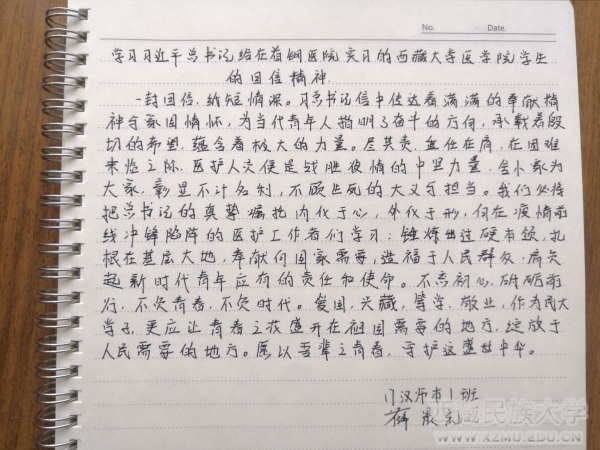 No. Date.
学习习近平总书记给在首钢医院实习的西藏大学医学院学生
的回信精神
一封回信,纸短情深。习总书记信中传达着满满的奉献精
神与家国情怀,为当代青年人指明了奋斗的方向,承载着殷
切的希望,蕴含着极大的力量。尽其责,重任在肩,在困难
来临之际,医护人员便是战胜疫情的中坚力量,舍小家为
大家,彰显不计名利,不顾生死的大义与担当。我们必将
把总书记的真挚嘱托内化于心,外化于形,向在疫情前
线冲锋陷阵的医护工作者们学习:锤炼出过硬本领,扎
根在基层大地,奉献向国家需要,造福于人民群众,肩负
起新时代青年应有的责任和使命。不忘初心,砥砺前
行,不负青春,不负时代。爱国,兴藏,笃学,敬业,作为民大
学子,更应让青春之花盛开在祖国需要的地方,绽放于
人民需要的地方。愿以吾辈之青春,守护这盛世中华。
17汉师本1班
薛
西藏民族大学
WWW.XZMU.EDU.CN